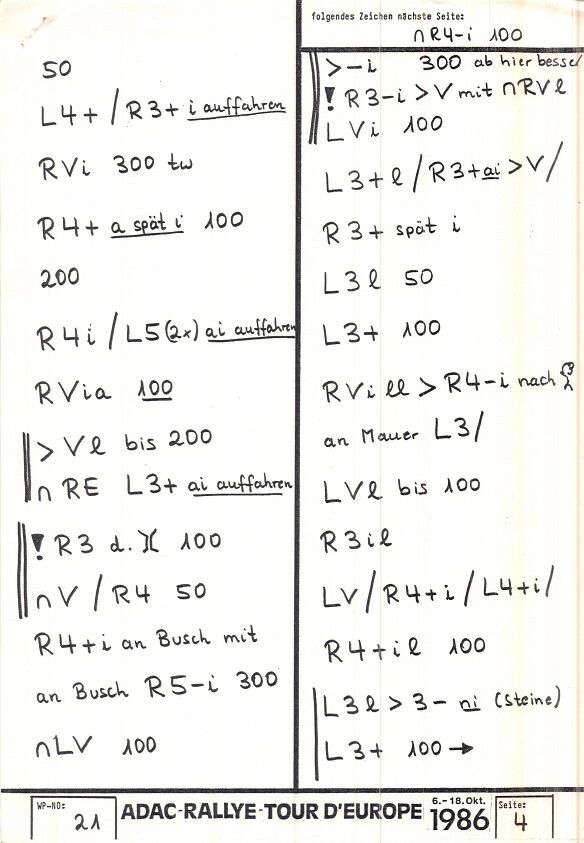 folgendes Zeichen nächste Seite:
∩ R4-i 100
50
L4+ / R3+ i auffahren
RVi 300 tw
R4+ a spät i 100
200
R4i / L5 (2x) ai auffahren
RVia 100
> Vl bis 200
∩ RE L3+ ai auffahren
! R3 d. )( 100
∩V / R4 50
R4+i an Busch mit
an Busch R5-i 300
∩LV 100
>-i 300 ab hier besser
! R3-i > V mit ∩RVl
LVi 100
L3+l / R3+ai > V /
R3+ spät i
L3l 50
L3+ 100
RVi ll > R4-i nach
an Mauer L3/
LVl bis 100
R3il
LV / R4+i / L4+i /
R4+il 100
L3l > 3- ni (Steine)
L3+ 100 →
WP-NO: 21
ADAC-RALLYE-TOUR D'EUROPE
6.-18. Okt. 1986
Seite: 4